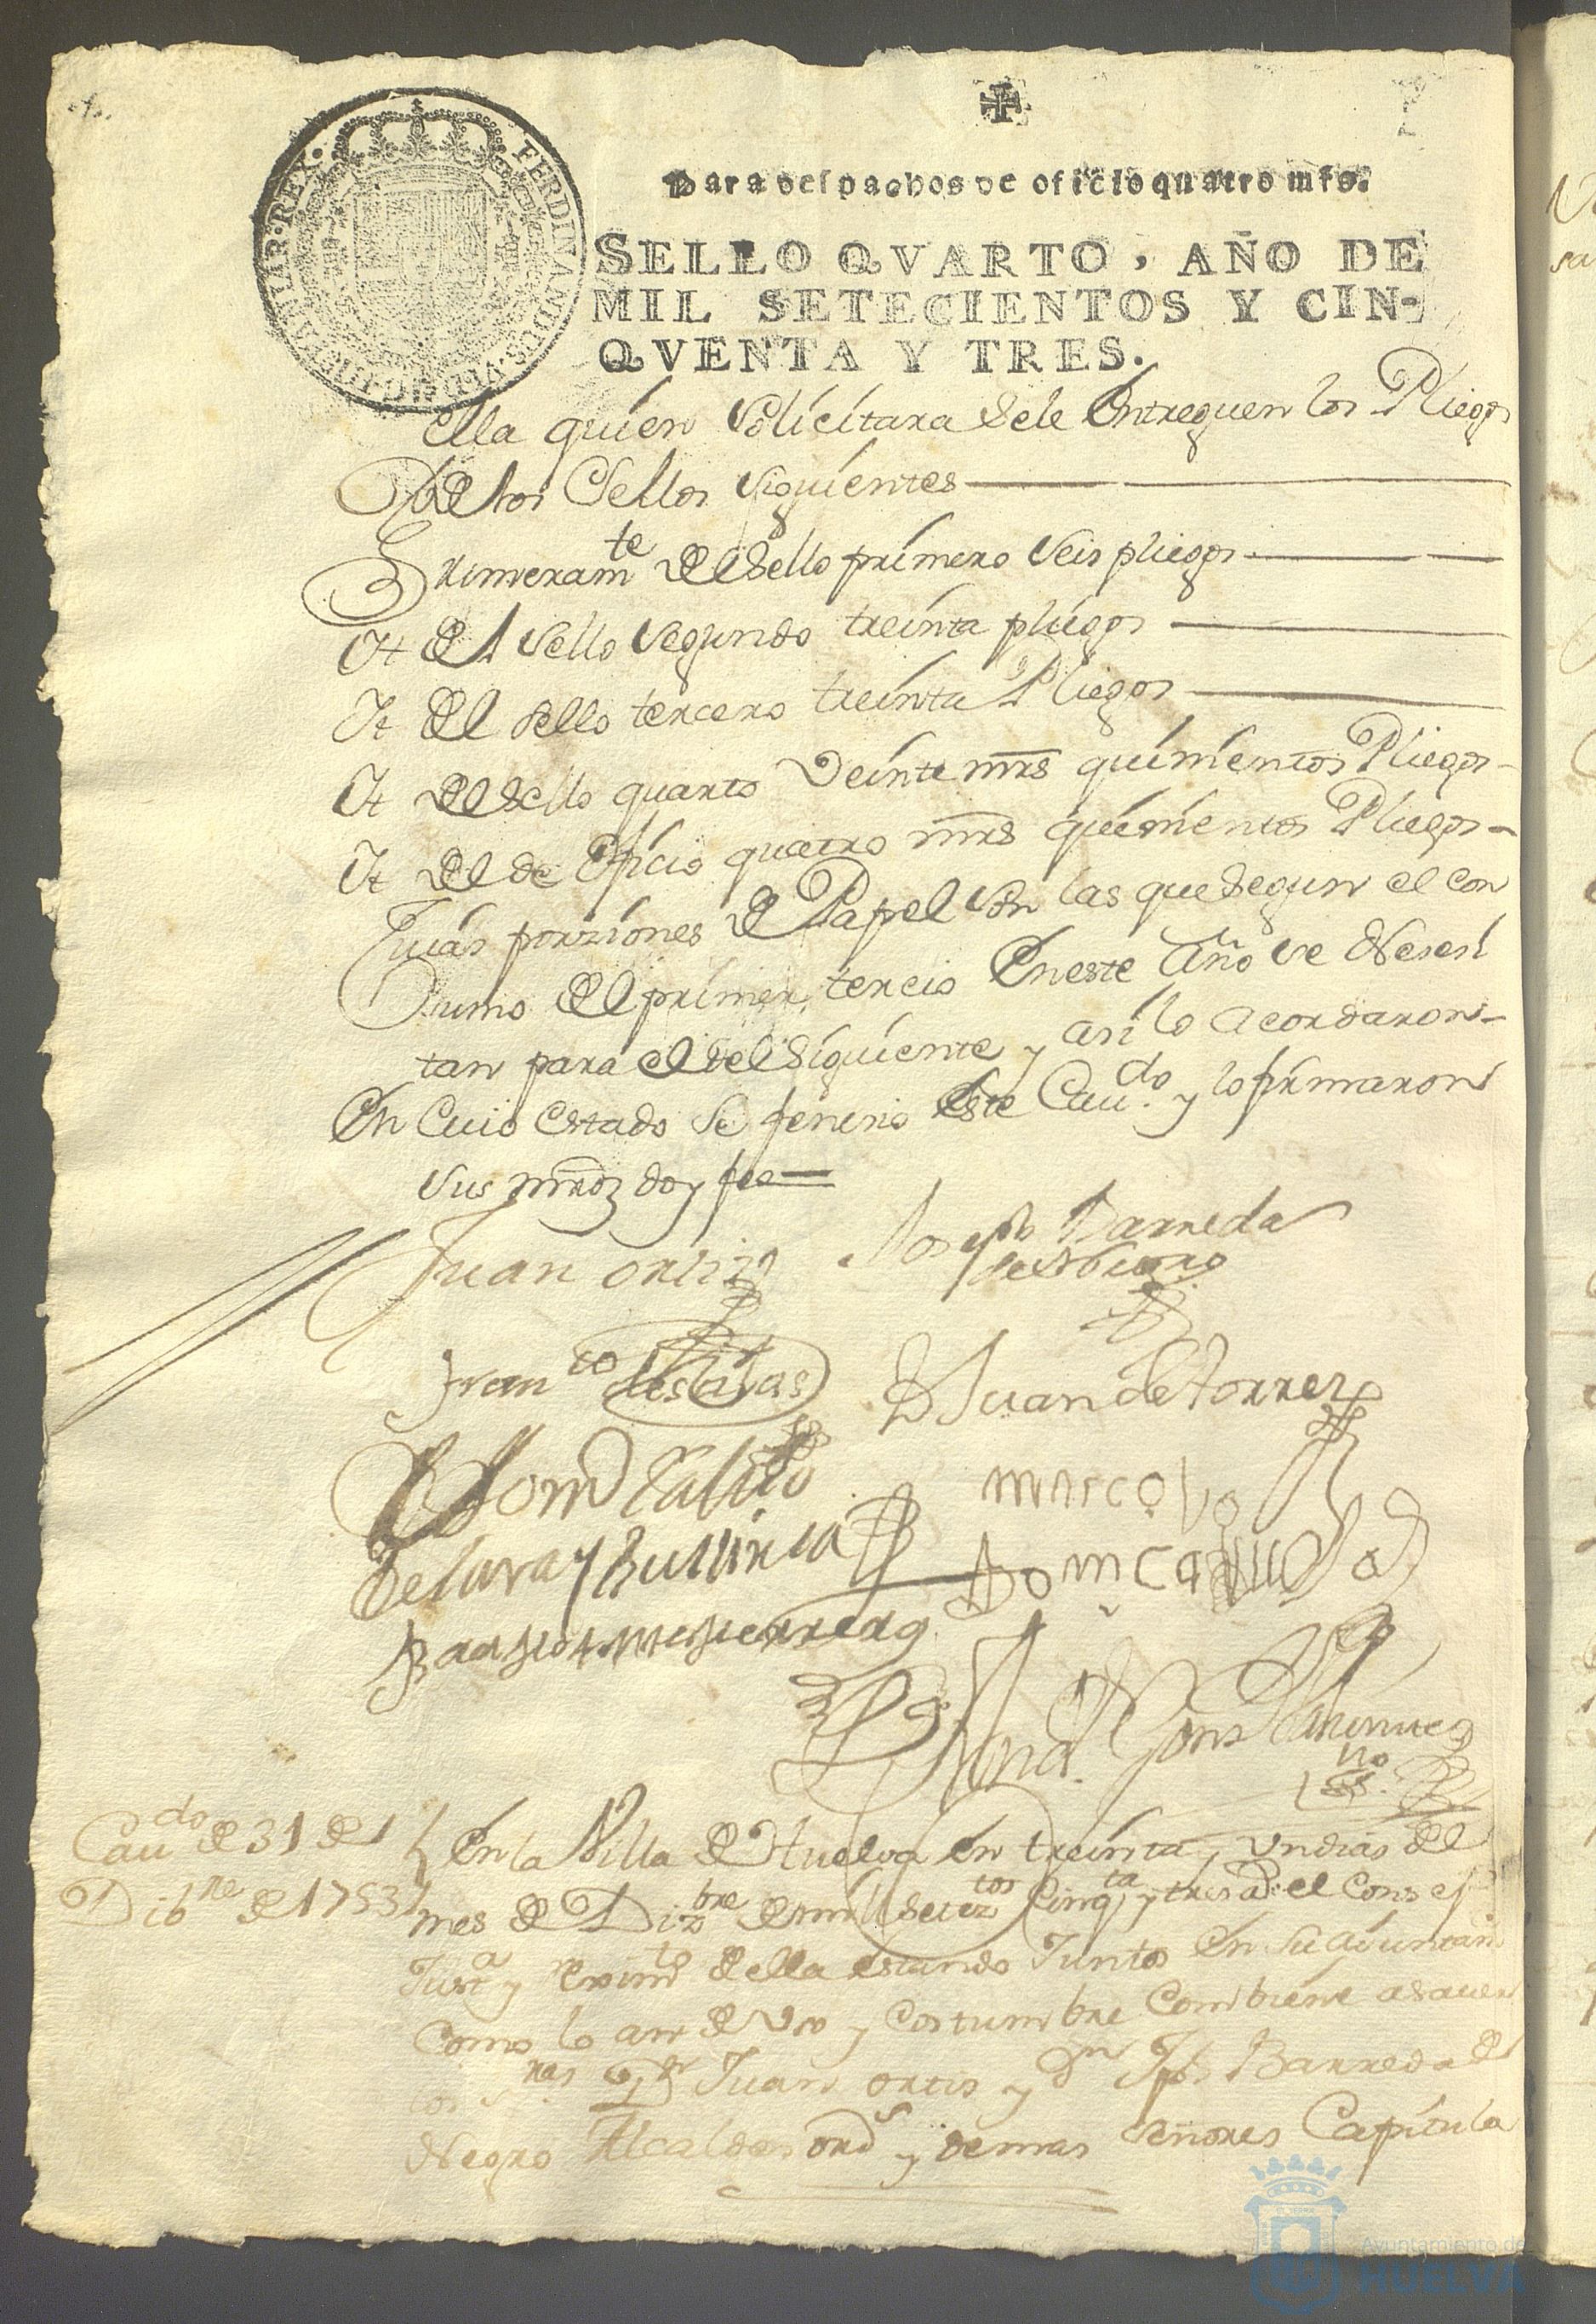 Para despachos de oficio quatro mrs.
SELLO QVARTO, AÑO DE
MIL SETECIENTOS Y CIN-
QVENTA Y TRES.
FERDINANDUS VI D G HISPANIAR REX
ella quien solicitara sele entreguen los Pliegos
de los Sellos siguientes
Primeramte del sello primero seis pliegos
Yt del sello segundo treinta pliegos
Yt del sello tercero treinta Pliegos
Yt del sello quarto veinte mrs quinientos Pliegos
Yt del de oficio quatro mrs quinientos Pliegos
Cuias porziones de Papel son las que segun el con
sumo del primer tercio eneste año se Nesesi
tan para el del siguiente y asi lo acordaron
En Cuio estado se fenecio este Cavdo y lo firmaron
sus mrdz doy fee
Juan ortiz
Joseph Barreda
de Negro
Franco de salas
Dn Juan de torres
de lara y
marco
Cavdo de 31 de
Dibre de 1753
En la Villa de Huelva en treinta y un dias del
mes de Dizbre de mill setezos cinqta y tres as el Consejo
Justa y reximto della estando Juntos en su aiuntam
Como lo an de uso y costumbre Combiene asauer
los Juan ortis y Dn Jph Barreda de
Negro Alcaldes ords y demas señores Capitula
Ayuntamiento de
HUELVA